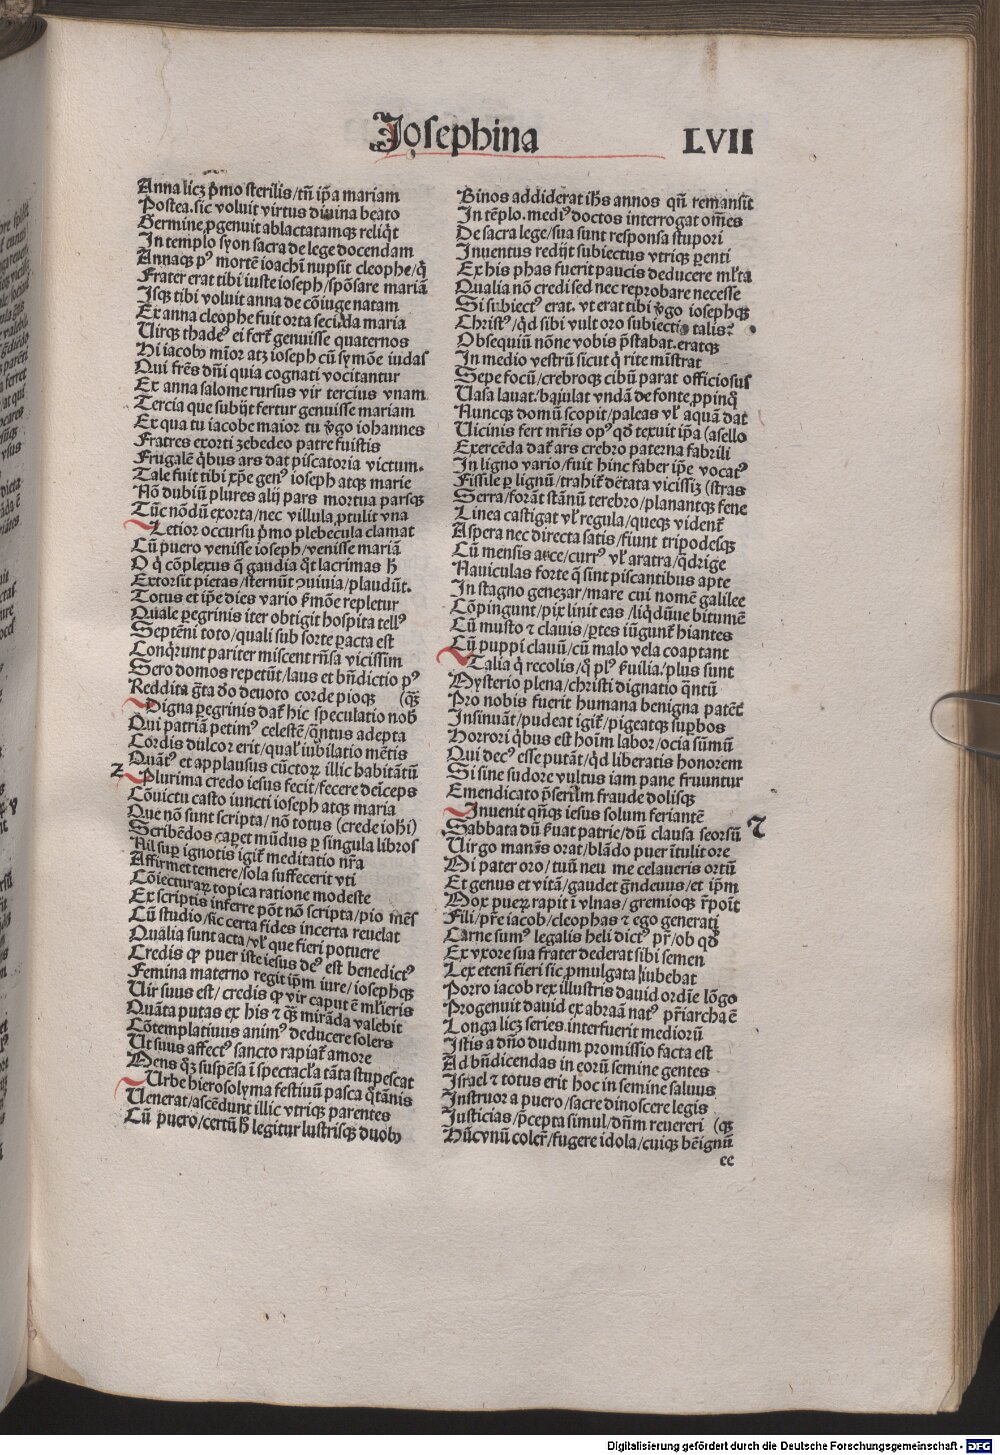 Josephina LVII
Anna licꝫ p̄mo sterilis/tn̄ ip̄a mariam
Postea.sic voluit virtus diuina beato
Germine ꝓgenuit ablactatamqꝫ reliq̇t
In templo syon sacra de lege docendam
Annaqꝫ pꝰ mortē ioachī nupsit cleophe/q̇
Frater erat tibi iuste ioseph/spōsare mariā
Isqꝫ tibi voluit anna de cōiuge natam
Ex anna cleophe fuit orta secūda maria
Uirqꝫ thadeꝰ ei fert᷑ genuisse quaternos
Hi iacobꝰ mīor atqꝫ ioseph cū symōe iudas
Qui fr̄es dn̄i quia cognati vocitantur
Ex anna salome rursus vir tercius vnam
Tercia que subijt fertur genuisse mariam
Ex qua tu iacobe maior tu v̄go iohannes
Fratres exorti zebedeo patre fuistis
Frugalē q̇bus ars dat piscatoria victum.
Tale fuit tibi xp̄e genꝰ ioseph atqꝫ marie
Nō dubiū plures alij pars mortua parsqꝫ
Tūc nōdū exorta/nec villula ꝓtulit vna
Letior occursu p̄mo plebecula clamat
Cū puero venisse ioseph/venisse mariā
O q̄ cōplexus q̄ gaudia q̄t lacrimas h̄
Extorsit pietas/sternūt ꝯuiuia/plaudūt.
Totus et ip̄e dies vario s̄mōe repletur
Quale ꝑegrinis iter obtigit hospita tellꝰ
Septēni toto/quali sub sorte ꝑacta est
Conq̄runt pariter miscent rn̄sa vicissim
Sero domos repetūt/laus et bn̄dictio pꝰ
Reddita gr̄a deo deuoto corde pioqꝫ (q̄ꝫ
Digna ꝑegrinis dat᷑ hic speculatio nob̄
Qui patriā petimꝰ celestē/q̄ntus adepta
Cordis dulcor erit/qual᷑ iubilatio mētis
Quātꝰ et applausus cūctoꝝ illic habitātū
2
Plurima credo iesus fecit/fecere deīceps
Cōuictu casto iuncti ioseph atqꝫ maria
Que nō sunt scripta/nō totus (crede ioh̄i)
Scribēdos caꝑet mūdus ꝑ singula libros
Nil suꝑ ignotis igit᷑ meditatio nr̄a
Affirmet temere/sola suffecerit vti
Cōiecturaꝝ topica ratione modeste
Ex scriptis inferre pōt nō scripta/pio mēs
Cū studio/sic certa fides incerta reuelat
Qualia sunt acta/vl᷑ que fieri potuere
Credis ꝙ puer iste iesus deꝰ est benedictꝰ
Femina materno regit ip̄m iure/iosephqꝫ
Uir suus est/credis ꝙ vir caput ē ml᷑ieris
Quāta putas ex his ⁊ q̄ꝫ mirāda valebit
Cōtemplatiuus animꝰ deducere solers
Ut suus affectꝰ sancto rapiat᷑ amore
Mens q̄ꝫ suspēsa ī spectacl᷑a tāta stupescat
Urbe hierosolyma festiuū pasca q̇tānis
Uenerat/ascēdunt illic vtriqꝫ parentes
Cū puero/certū h̄ legitur lustrisqꝫ duobꝰ
Binos addiderat ih̄s annos qn̄ remansit
In tēplo.mediꝰ doctos interrogat om̄es
De sacra lege/sua sunt responsa stupori
Inuentus redijt subiectus vtriqꝫ ꝑenti
Ex his phas fuerit paucis deducere ml᷑ta
Qualia nō credi sed nec reprobare necesse
Si subiectꝰ erat.vt erat tibi v̄go iosephqꝫ
Christꝰ/q̇d sibi vult oro subiectio talis?
Obsequiū nōne vobis p̄stabat.eratqꝫ
In medio vestrū sicut q̇ rite mīstrat
Sepe focū/crebroqꝫ cibū parat officiosus
Uasa lauat/baiulat vndā de fonte ꝓpinq̇
Nuncqꝫ domū scopit/paleas vl᷑ aquā dat
Uicinis fert mr̄is opꝰ qd̄ texuit ip̄a (asello
Exercēda dat᷑ ars crebro paterna fabrili
In ligno vario/fuit hinc faber ip̄e vocatꝰ
Fissile ꝑ lignū/trahit᷑ dētata vicissiꝫ (stras
Serra/forāt stānū terebro/planantqꝫ fene
Linea castigat vl᷑ regula/queqꝫ vident᷑
Aspera nec directa satis/fiunt tripodesqꝫ
Cū mensis arce/currꝰ vl᷑ aratra/q̇drige
Nauiculas forte q̄ sint piscantibus apte
In stagno geneᴣar/mare cui nomē galilee
Cōpingunt/pix linit eas/liq̇dūue bitumē
Cū musto ⁊ clauis/ꝑtes iūgunt᷑ hiantes
Cū puppi clauū/cū malo vela coaptant
Talia q̇ recolis/q̄ plꝰ s̄uilia/plus sunt
Mysterio plena/christi dignatio q̄ntū
Pro nobis fuerit humana benigna patēt᷑
Insinuāt/pudeat igit᷑/pigeatqꝫ suꝑbos
Horrori q̇bus est hoīm labor/ocia sūmū
Qui decꝰ esse putāt/q̇d liberatis honorem
Si sine sudore vultus iam pane fruuntur
Emendicato p̄sertīm fraude dolisqꝫ
Inuenit qn̄qꝫ iesus solum feriantē
Sabbata dū s̄uat patrie/dū clausa seorsū
7
Uirgo manēs orat/blādo puer ītulit ore
Mi pater oro/tuū neu me celaueris ortū
Et genus et vitā/gaudet grādeuus/et ip̄m
Mox pueꝝ rapit ī vlnas/gremioqꝫ rp̄oīt
Fili/pr̄e iacob/cleophas ⁊ ego generati
Carne sumꝰ legalis heli dictꝰ pr̄/ob qd̄
Ex vxore sua frater dederat sibi semen
Lex etenī fieri sic ꝓmulgata iubebat
Porro iacob rex illustris dauid ordīe lōgo
Progenuit dauid ex abraā natꝰ pr̄iarcha ē
Longa licꝫ series interfuerit mediorū
Istis a dn̄o dudum promissio facta est
Ad bn̄dicendas in eorū semine gentes
Israel ⁊ totus erit hoc in semine saluus
Instruor a puero/sacre dinoscere legis
Iusticias/p̄cepta simul/dn̄m reuereri (qꝫ
Hūcvnū coler᷑/fugere idola/cuiqꝫ bēignū
ee
Digitalisierung gefördert durch die Deutsche Forschungsgemeinschaft - DFG